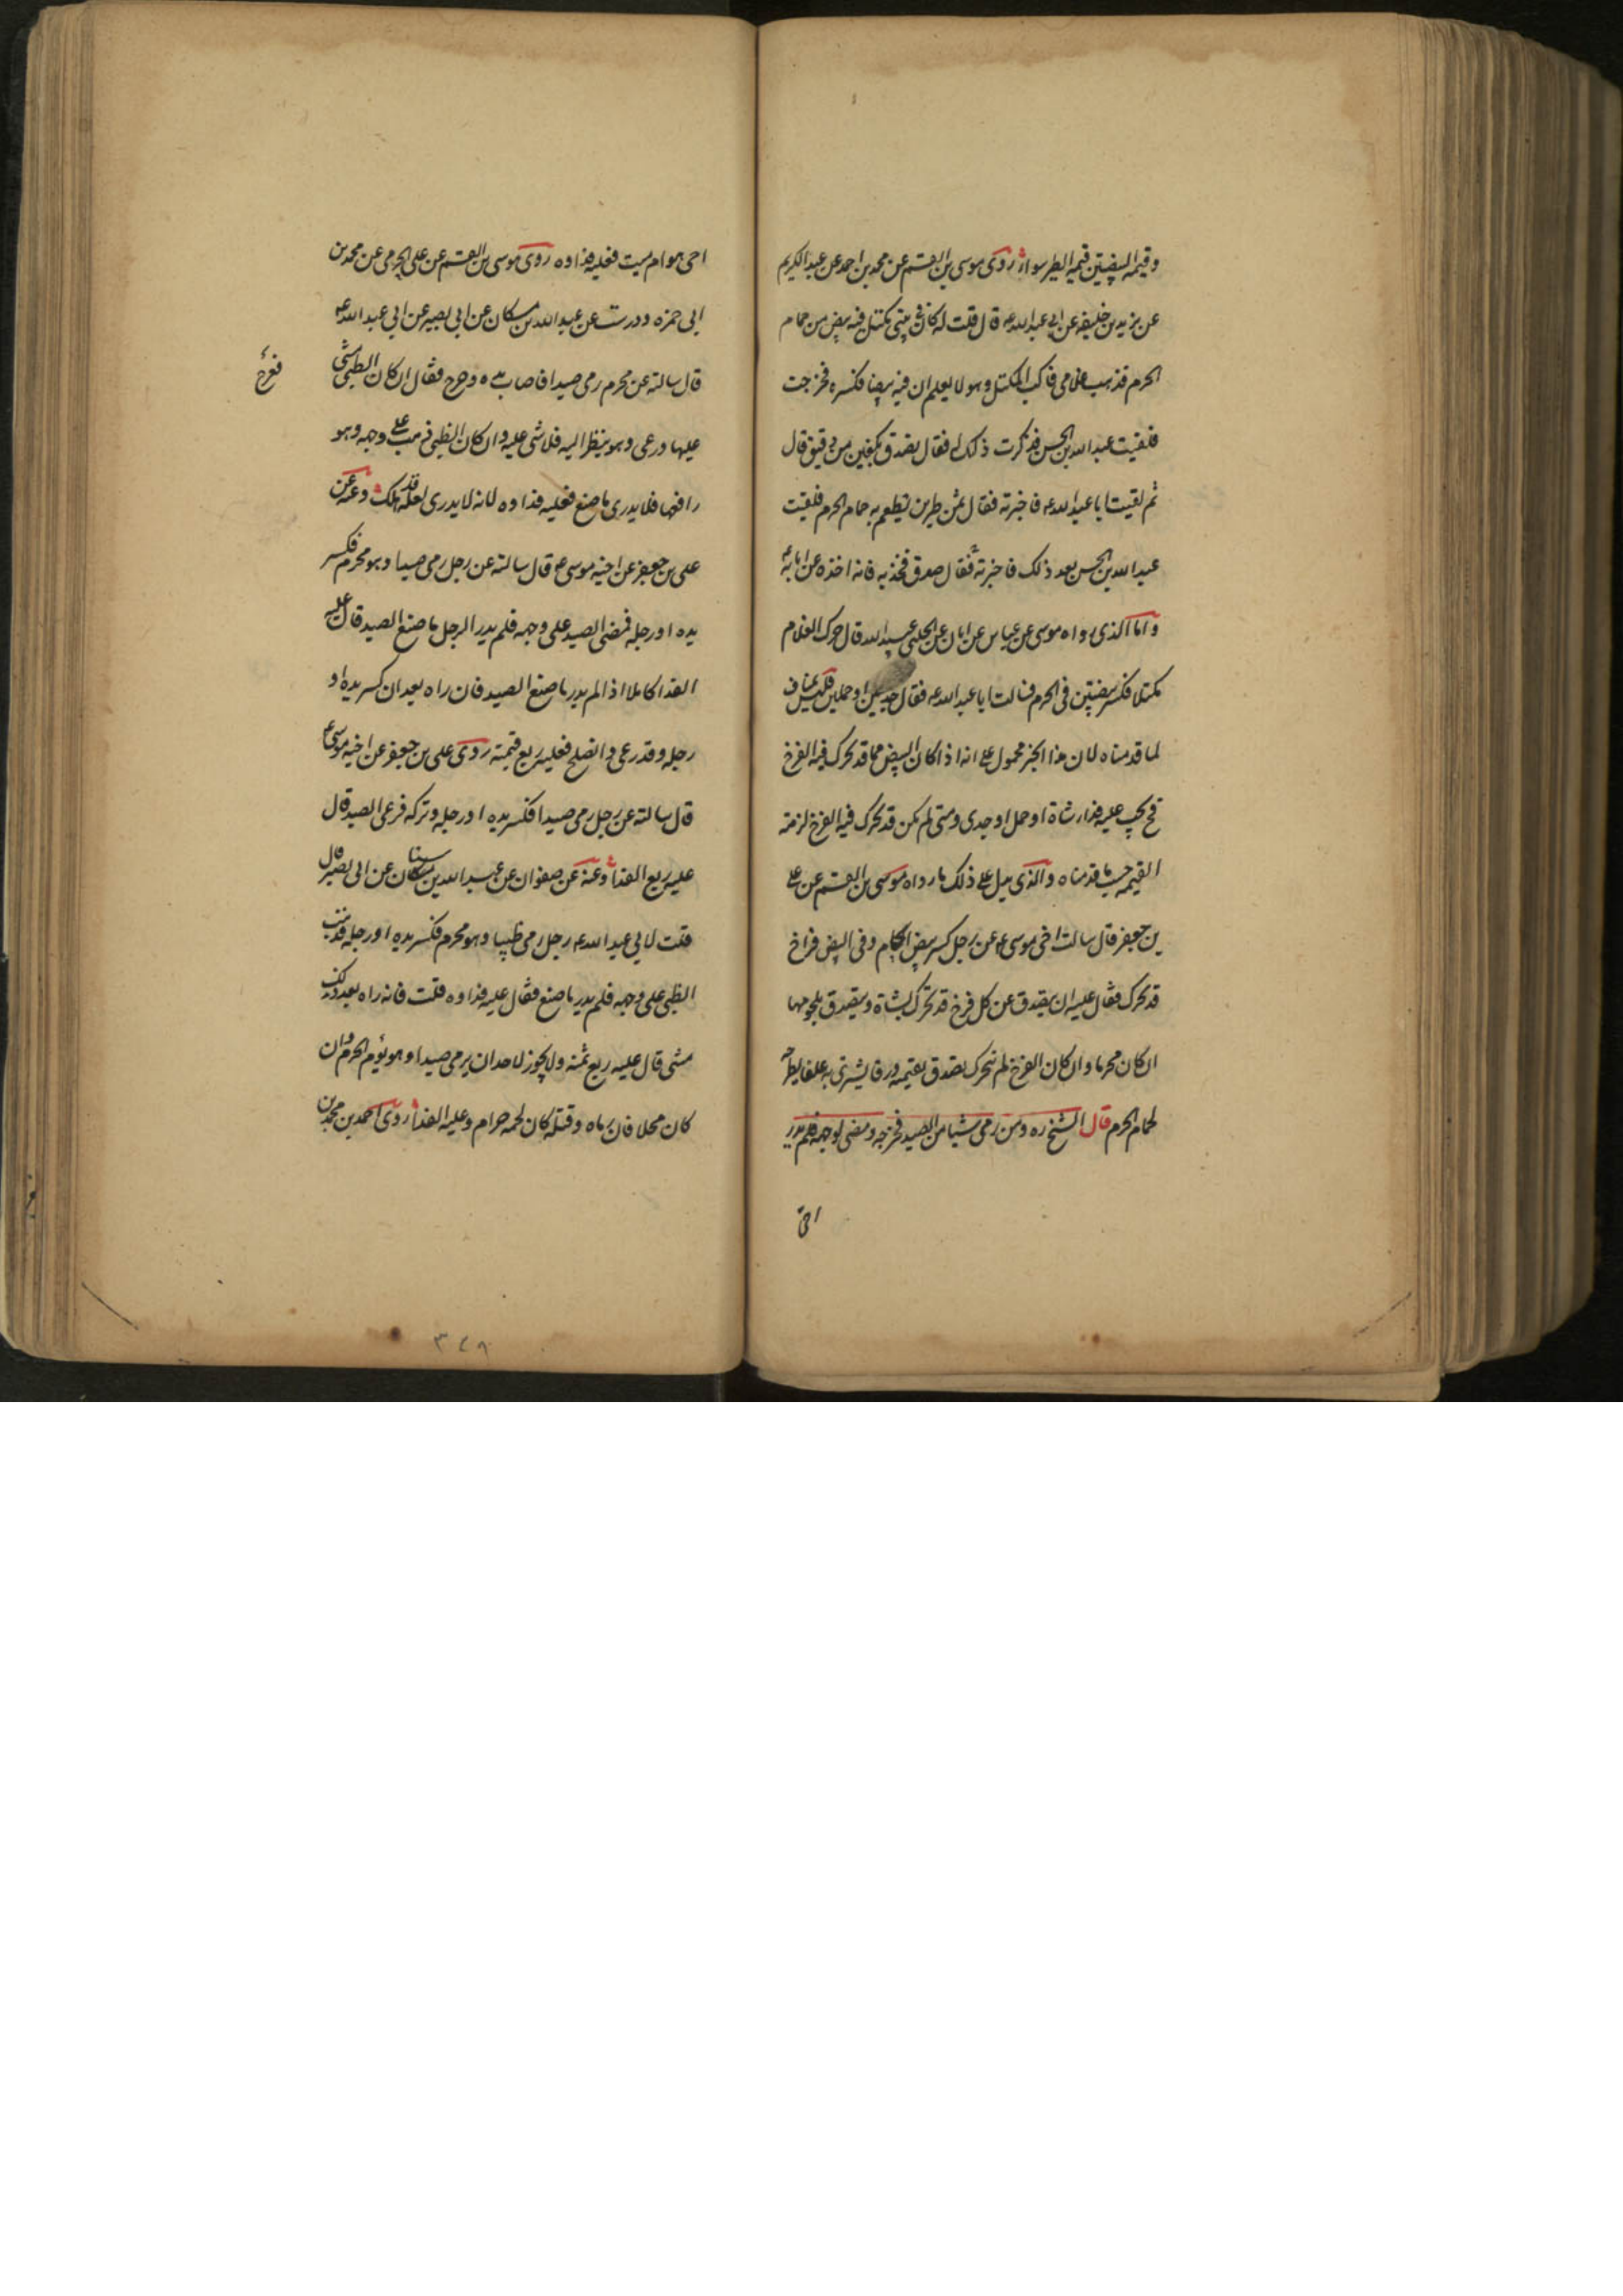 وقيمه البيضتين قيمه الطير سواء روى موسى بن القسم عن محمد بن احمد عن عبد الكريم
عن يزيد بن خليفه عن ابى عبد الله ع قال قلت له كان فى بيتى مكتل فيه بيض من حمام
الحرم فذهب غلامى فاكب المكتل وهو لا يعلم ان فيه بيضا فكسره فخرجت
فلقيت عبد الله بن الحسن فذكرت ذلك له فقال تصدق بكفين من دقيق قال
ثم لقيت ابا عبد الله ع فاخبرته فقال ثمن طيرين تطعم به حمام الحرم فلقيت
عبد الله بن الحسن بعد ذلك فاخبرته فقال صدق فخذ به فانه اخذه عن ابائه
واما الذى رواه موسى عن عباس عن ابان عن الحلبى عبيد الله قال حرك الغلام
مكتلا فكسر بيضتين فى الحرم فسالت ابا عبد الله ع فقال جديين او حملين فليس ينافى
لما قدمناه لان هذا الخبر محمول على انه اذا كان البيض مما قد تحرك فيه الفرخ
فح يجب عليه فداء شاة او حمل او جدى ومتى لم يكن قد تحرك فيه الفرخ لزمته
القيمه حسب ما قدمناه والذى يدل على ذلك ما رواه موسى بن القسم عن على
بن جعفر قال سالت اخى موسى ع عن رجل كسر بيض الحمام وفى البيض فراخ
قد تحرك فقال عليه ان يتصدق عن كل فرخ قد تحرك بشاة ويتصدق بلحومها
ان كان محرما وان كان الفرخ لم يتحرك تصدق بقيمته ورقا يشترى به علفا يطرحه
لحمام الحرم قال الشيخ ره ومن رمى شيئا من الصيد فجرحه ومضى لوجهه فلم يدر
احى
احى هو ام ميت فعليه فداوه روى موسى بن القسم عن على الجرمى عن محمد بن
ابى حمزه ودرست عن عبد الله بن مسكان عن ابى بصير عن ابى عبد الله ع
قال سالته عن محرم رمى صيدا فاصاب يده وعرج فقال ان كان الظبى مشى
عليها ورعى وهو ينظر اليه فلا شى عليه وان كان الظبى ذهب على وجهه وهو
رافعها فلا يدرى ما صنع فعليه فداوه لانه لا يدرى لعله قد هلك وعنه عن
على بن جعفر عن اخيه موسى ع قال سالته عن رجل رمى صيدا وهو محرم فكسر
يده او رجله فمضى الصيد على وجهه فلم يدر الرجل ما صنع الصيد قال عليه
الفدا كاملا اذا لم يدر ما صنع الصيد فان راه بعد ان كسر يده او
رجله وقد رعى وانصلح فعليه ربع قيمته روى على بن جعفر عن اخيه موسى ع
قال سالته عن رجل رمى صيدا فكسر يده او رجله وتركه فرعى الصيد قال
عليه ربع الفدا وعنه عن صفوان عن عبد الله بن سنان عن ابى بصير قال
قلت لابى عبد الله ع رجل رمى ظبيا وهو محرم فكسر يده او رجله فذهب
الظبى على وجهه فلم يدر ما صنع فقال عليه فداوه قلت فانه راه بعد ذلك
مشى قال عليه ربع ثمنه ولا يجوز لاحد ان يرمى صيدا وهو يؤم الحرم وان
كان محلا فان رماه وقتله كان لحمه حرام وعليه الفدا روى احمد بن محمد بن
٣٤٨